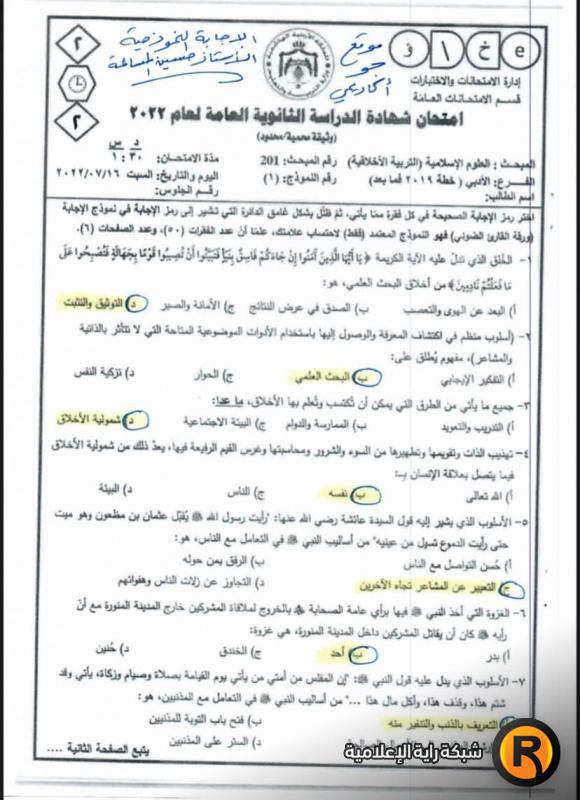 e خ ا ف
إدارة الامتحانات والاختبارات
قسم الامتحانات العامة
موقع
جو
أكاديمي
الاجابة النموذجية
٢
٢
امتحان شهادة الدراسة الثانوية العامة لعام ٢٠٢٢
(وثيقة محمية/محدود)
المبحث: العلوم الإسلامية (التربية الأخلاقية) رقم المبحث: 201 مدة الامتحان: ٣٠ : ١ د س
الفرع: الأدبي (خطة ٢٠١٩ فما بعد) رقم النموذج: (١) اليوم والتاريخ: السبت ٢٠٢٢/٠٧/١٦
اسم الطالب: رقم الجلوس:
اختر رمز الإجابة الصحيحة في كل فقرة ممّا يأتي، ثم ظلّل بشكل غامق الدائرة التي تشير إلى رمز الإجابة في نموذج الإجابة
(ورقة القارئ الضوئي) فهو النموذج المعتمد (فقط) لاحتساب علامتك، علمًا أنّ عدد الفقرات (٥٠)، وعدد الصفحات (٦).
١- الخُلُق الذي تدلّ عليه الآية الكريمة ﴿يَا أَيُّهَا الَّذِينَ آمَنُوا إِنْ جَاءَكُمْ فَاسِقٌ بِنَبَأٍ فَتَبَيَّنُوا أَنْ تُصِيبُوا قَوْمًا بِجَهَالَةٍ فَتُصْبِحُوا عَلَى
مَا فَعَلْتُمْ نَادِمِينَ﴾ من أخلاق البحث العلمي، هو:
أ) البعد عن الهوى والتعصب ب) الصدق في عرض النتائج ج) الأمانة والصبر د) التوثيق والتثبت
٢- (أسلوب منظم في اكتشاف المعرفة والوصول إليها باستخدام الأدوات الموضوعية المتاحة التي لا تتأثر بالذاتية
والمشاعر)، مفهوم يُطلق على:
أ) التفكير الإيجابي ب) البحث العلمي ج) الحوار د) تزكية النفس
٣- جميع ما يأتي من الطرق التي يمكن أن تُكتسب وتُعلم بها الأخلاق، ما عدا:
أ) التدريب والتعويد ب) الممارسة والدوام ج) البيئة الاجتماعية د) شمولية الأخلاق
٤- تهذيب الذات وتقويمها وتطهيرها من السوء والشرور ومحاسبتها وغرس القيم الرفيعة فيها، يعدّ ذلك من شمولية الأخلاق
فيما يتصل بعلاقة الإنسان بـ:
أ) الله تعالى ب) نفسه ج) الناس د) البيئة
٥- الأسلوب الذي يشير إليه قول السيدة عائشة رضي الله عنها: "رأيت رسول الله ﷺ يُقبّل عثمان بن مظعون وهو ميت
حتى رأيت الدموع تسيل من عينيه" من أساليب النبي ﷺ في التعامل مع الناس، هو:
أ) حُسن التواصل مع الناس ب) الرفق بمن حوله
ج) التعبير عن المشاعر تجاه الآخرين د) التجاوز عن زلات الناس وهفواتهم
٦- الغزوة التي أخذ النبي ﷺ فيها برأي عامة الصحابة ﷺ بالخروج لملاقاة المشركين خارج المدينة المنورة مع أنّ
رأيه ﷺ كان أن يقاتل المشركين داخل المدينة المنورة، هي غزوة:
أ) بدر ب) أحد ج) الخندق د) حُنين
٧- الأسلوب الذي يدل عليه قول النبي ﷺ: "إن المفلس من أمتي من يأتي يوم القيامة بصلاة وصيام وزكاة، يأتي وقد
شتم هذا، وقذف هذا، وأكل مال هذا ..." من أساليب النبي ﷺ في التعامل مع المذنبين، هو:
أ) التعريف بالذنب والتنفير منه ب) فتح باب التوبة للمذنبين
د) الستر على المذنبين
يتبع الصفحة الثانية ....
شبكة راية الإعلامية
R